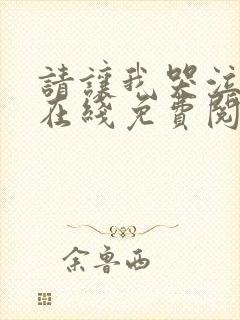 請讓我哭泣
在綫免費閱
余魯西